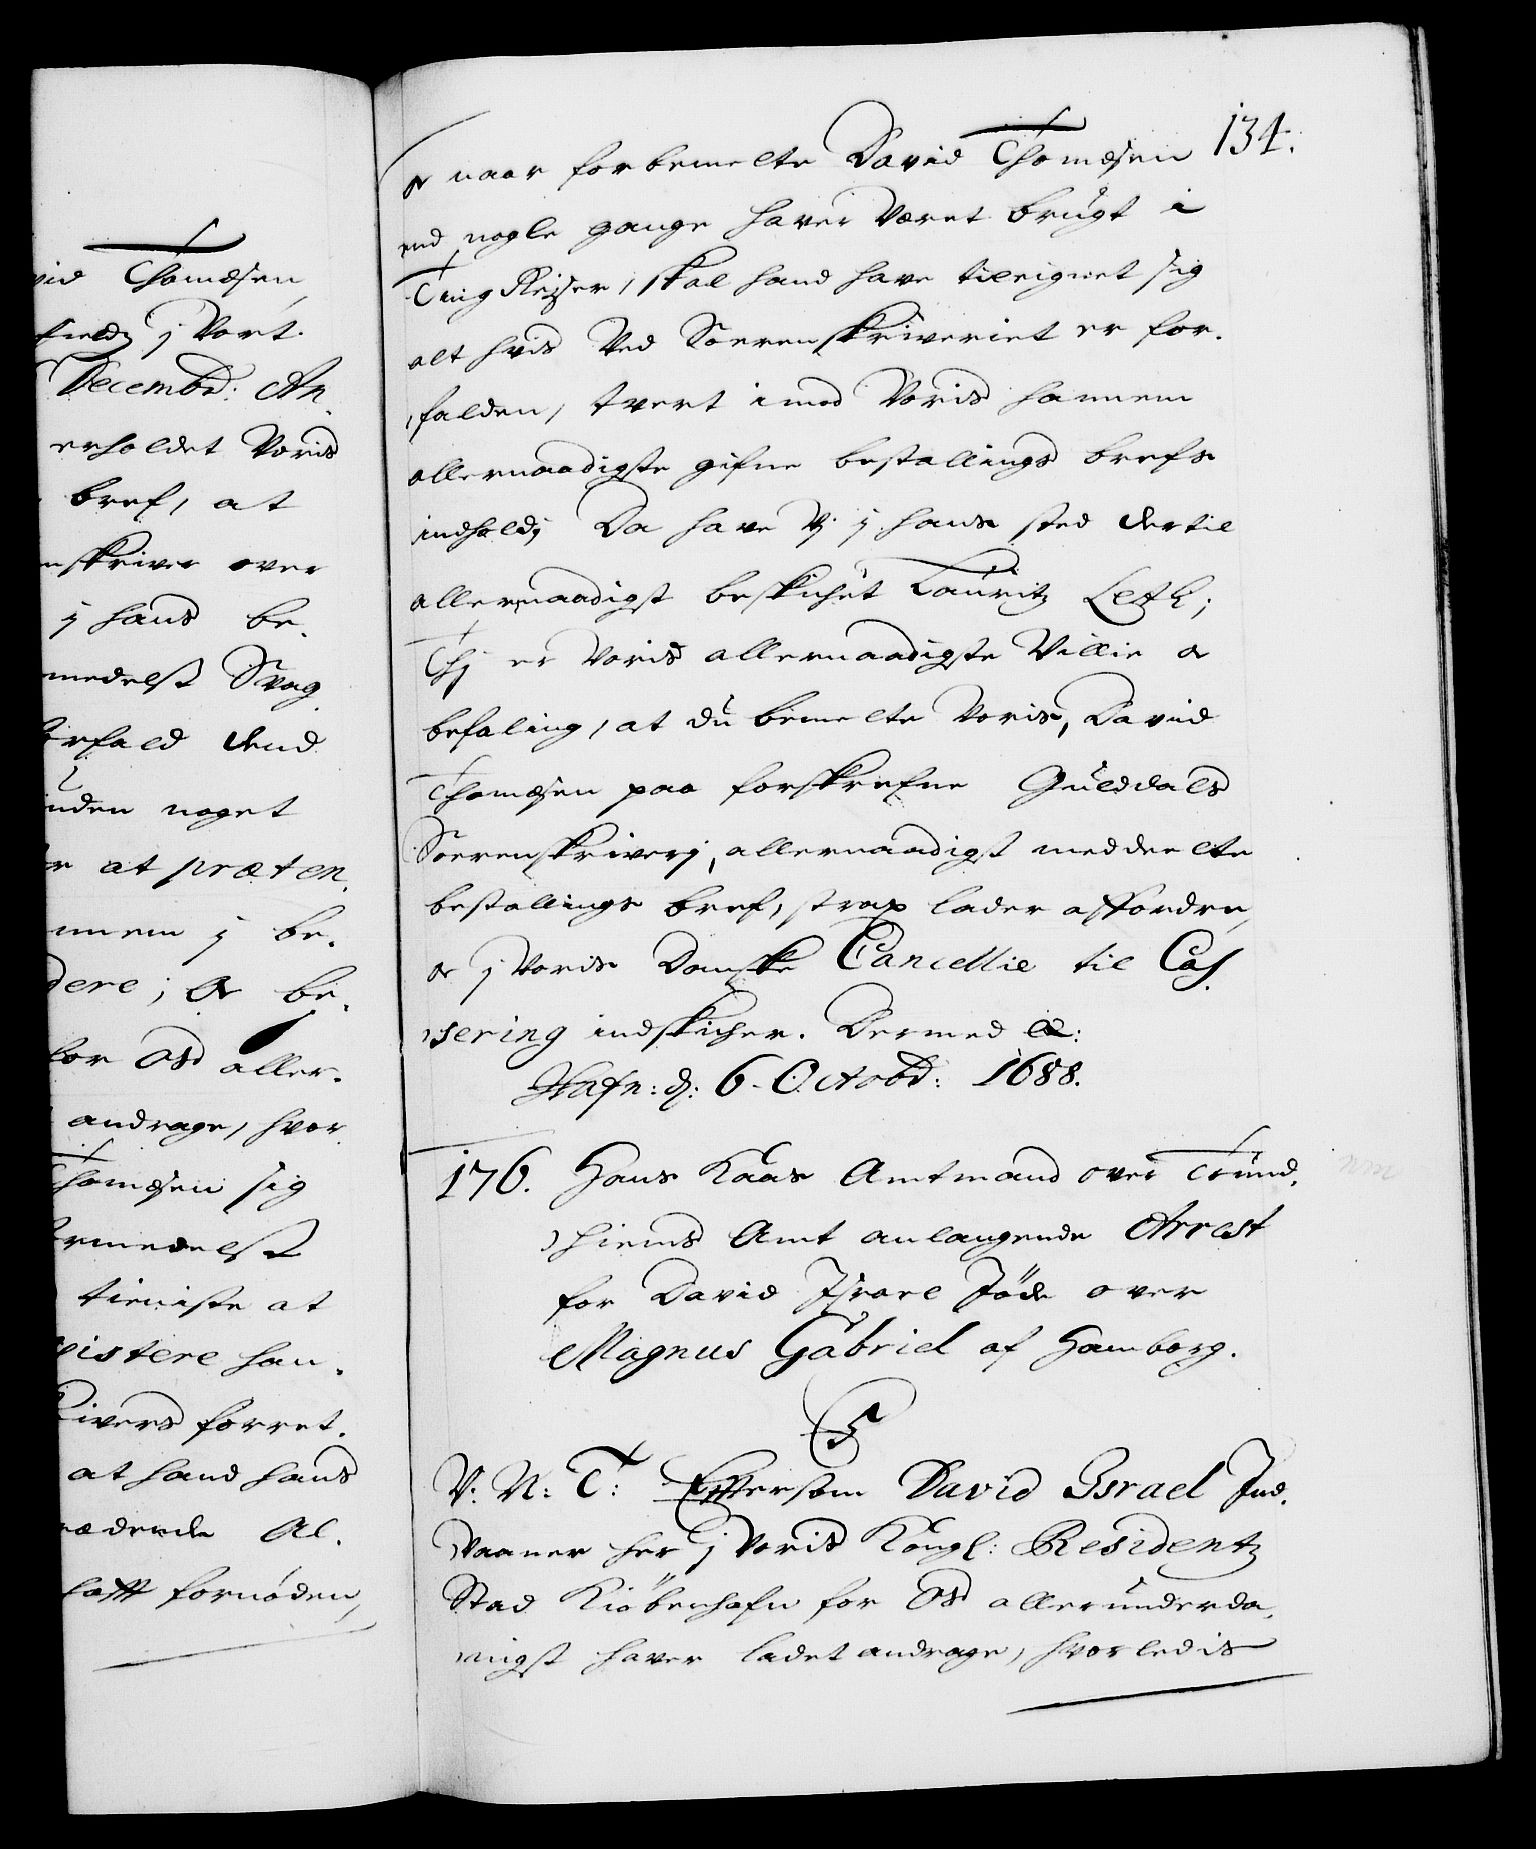 vid Thomæsen,
field j Vort
Decembd: An.
erholdet Voris
bref, at
nskriver over
j hans be.
medelst Svag
erfald dend
inden noget
er at præten.
nnem j be.
dere; Og be.
for Os aller.
andrage, hvor
Thomæsen sig
ermedelst
tieniste at
pistere han.
krivers forret.
at hand hans
rædende Al.
hafft fornøden,
134.
og naar forbemelte David Thomæsen
end nogle gange haver Været brugt i
Ting Reyser, skal hand have tilreignet sig
alt hvis Ved Sorenskriveriet er for.
falden, tvert imod Voris hannem
allernaadigste gifne bestallings brefs
indhold; Da have Vj j hans sted dertil
allernaadigst beskichet Lauritz Leth;
Thj er Voris allernaadigste Villie og
befaling, at du bemelte Voris, David
Thomæsen paa forskrefne Guldals
Sorenskriverj, allernaadigst meddeelte
bestallings bref, strax lader affordre,
og j Voris Danske Cancellie til Cas.
sering indskicher. Dermed etc:
Hafn: d: 6. Octobd: 1688.
176. Hans Kaas Amtmand over Trund.
hiems Amt anlangende Arrest
for David Israel Jöde over
Magnus Gabriel af Hamborg.
C5
V. N: T: Eftersom David Israel Jud.
Vaaner her j Voris Kongl: Residentz
Stad Kiöbenhafn for Os allerunderda.
nigst haver ladet andrage, hvorledis